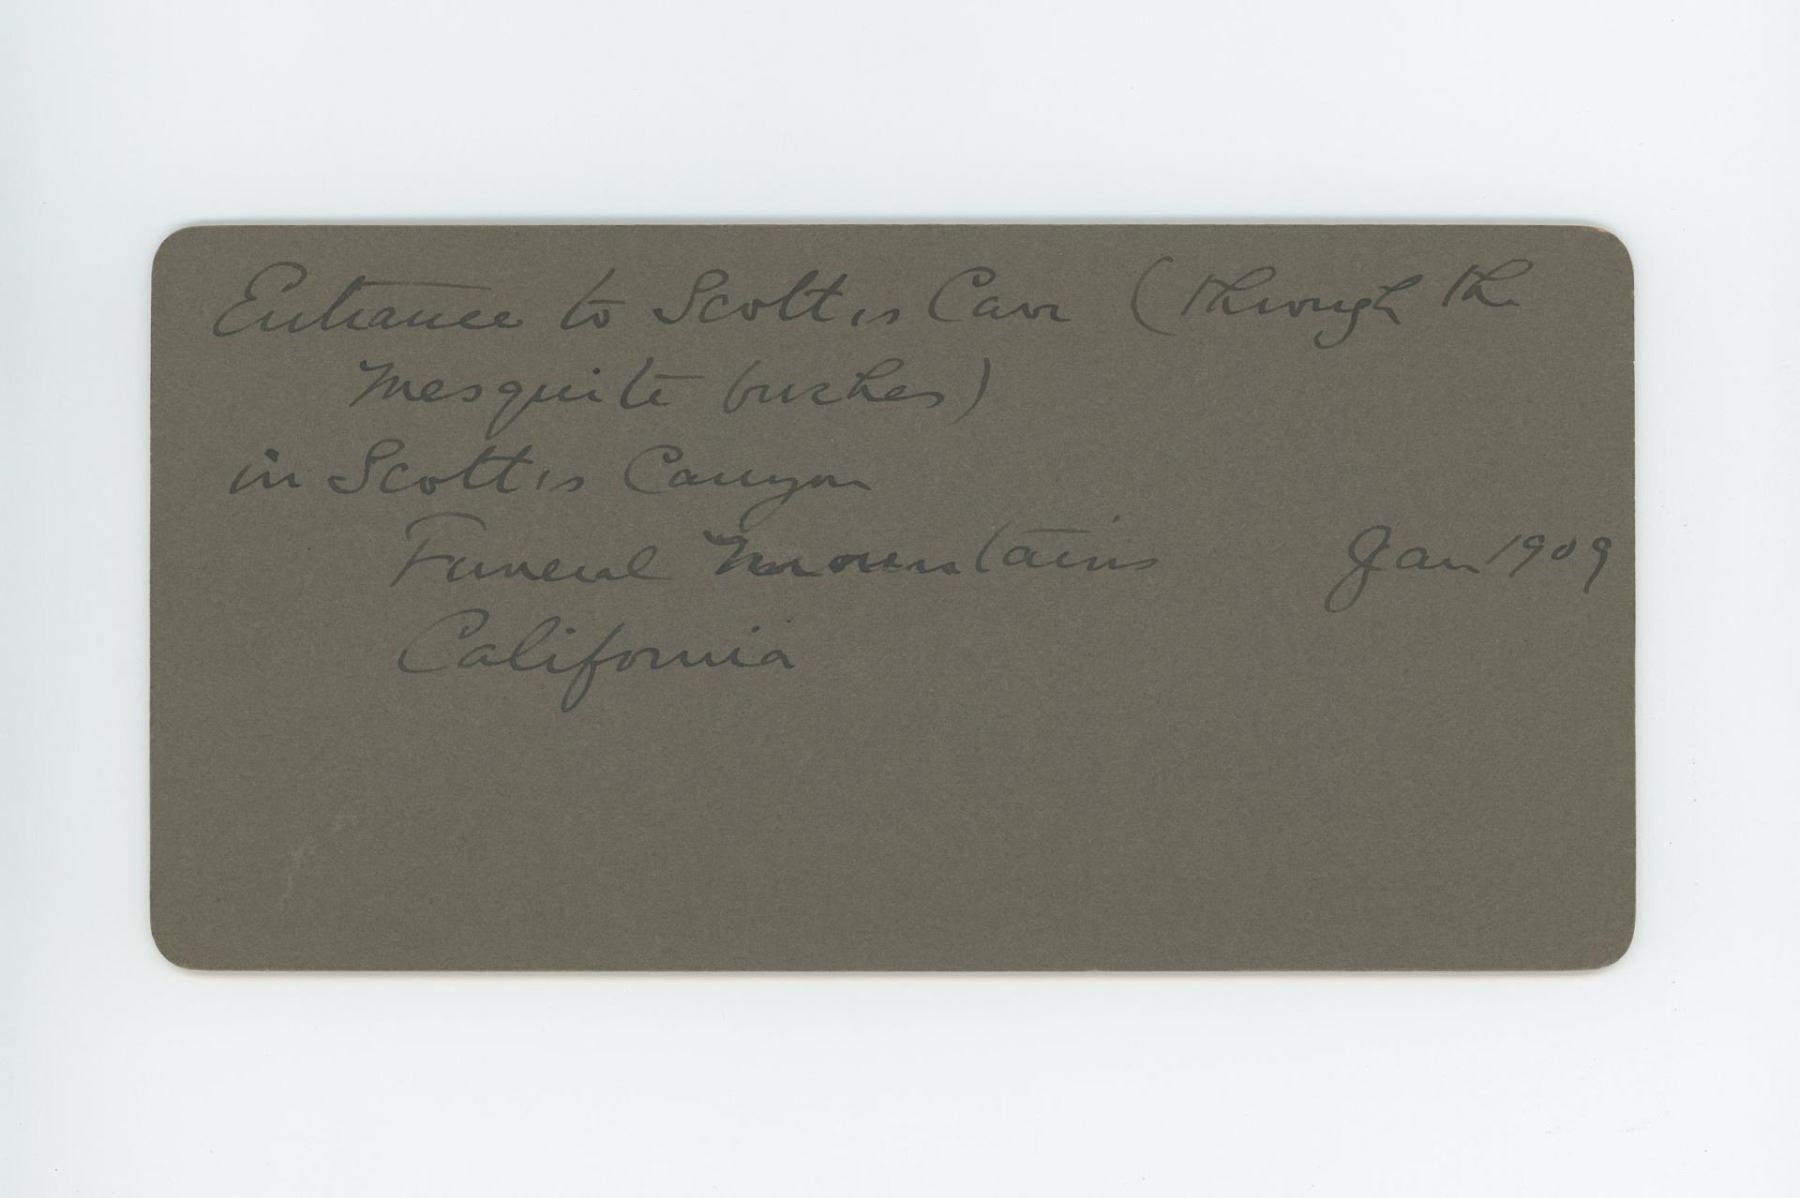 Entrance to Scott's Cave (through the
Mesquite bushes)
in Scott's Canyon
Funeral Mountains Jan 1909
California